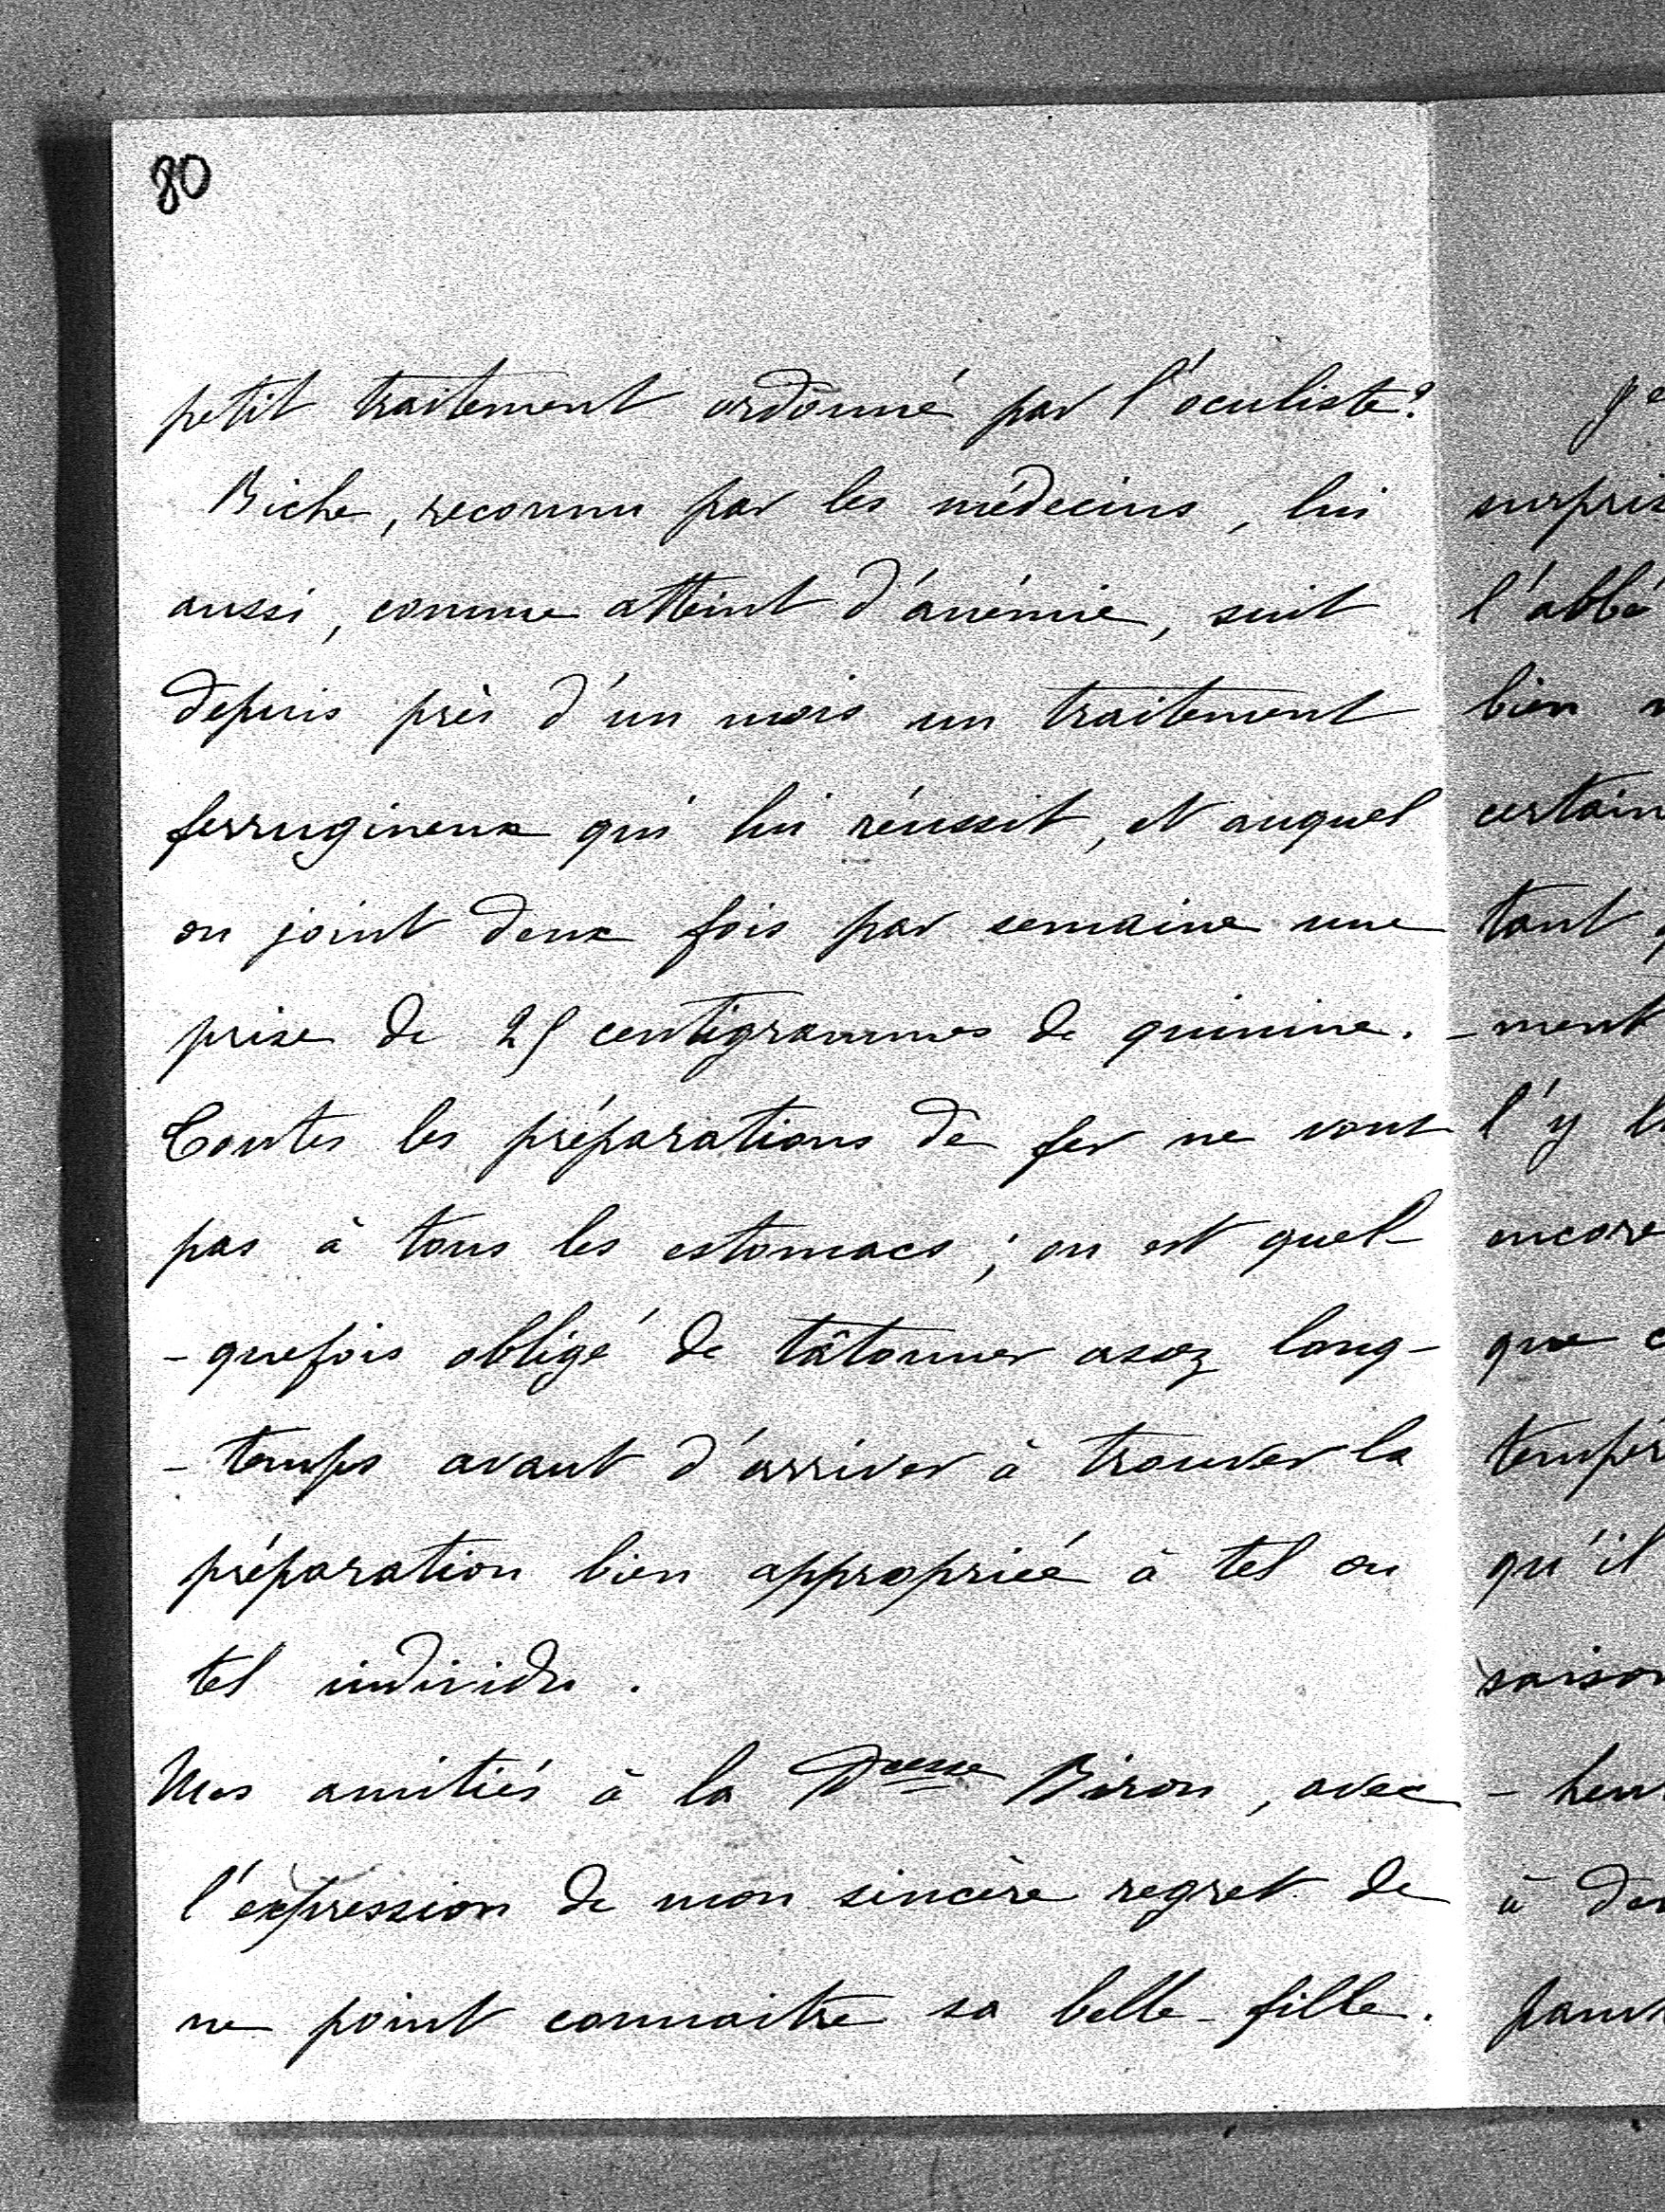 80
petit traitement ordonné par l'oculiste?
Biche, reconnu par les médecins, lui
aussi, comme atteint d'anémie, suit
depuis près d'un mois un traitement
ferrugineux qui lui réussit, et auquel
on joint deux fois par semaine une
prise de 25 centigrammes de quinine.
Toutes les préparations de fer ne vont
pas à tous les estomacs; on est quel-
-quefois obligé de tâtonner assez long-
-temps avant d'arriver à trouver la
préparation bien appropriée à tel ou
tel individu.
Mes amitiés à la Desse Biron, avec
l'expression de mon sincère regret de
ne point connaitre sa belle-fille.
Je
surpris
l'abbé
bien
certain
tant
-ment
l'y
encore
que
tempér
qu'il
saison
- heu
à